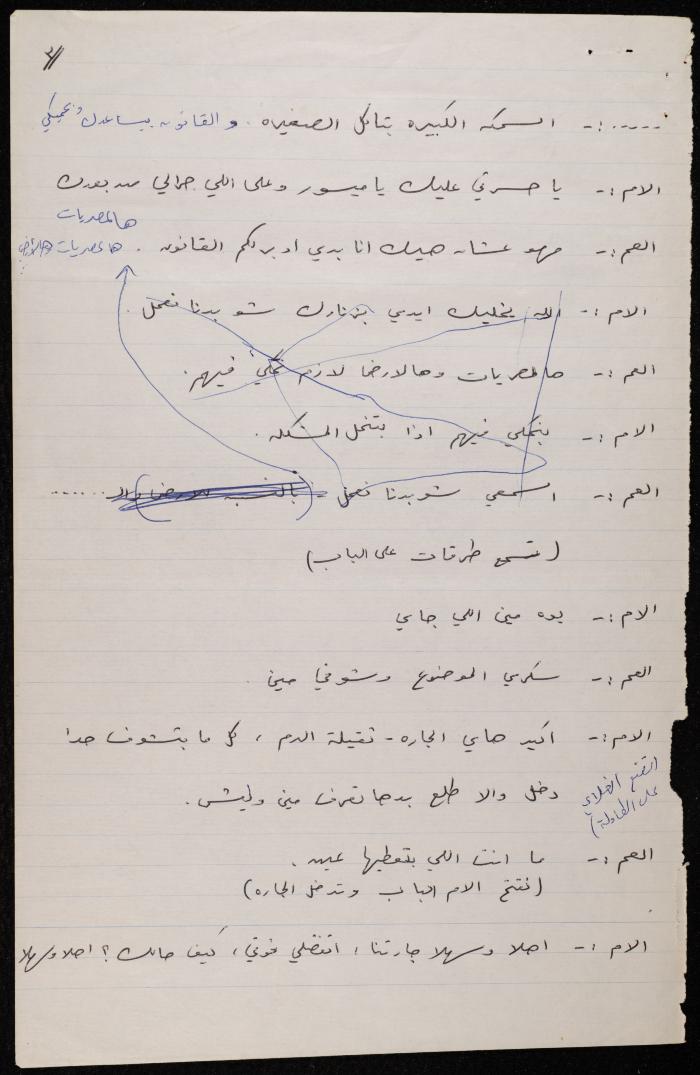 ..... :- السمكه الكبيره بتاكل الصغيره . والقانون بيساعدك
الام :- يا حسرتي عليك يا ميسور وعلى اللي جرالي من بعدك
هالمصريات
العم :- مهو عشان هيك انا بدي ادبرلكم القانون . هالمصريات وهالارض
الام :- الله يخليك ايدي بزنارك شو بدنا نعمل .
العم :- هالمصريات وهالارض لازم نحكي فيهم .
الام :- بنحكي فيهم اذا بتنحل المشكله .
العم :- اسمعي شو بدنا نعمل - (بالنسبه للارض والـ ......
(تسمع طرقات على الباب)
الام :- يوه مين اللي جاي
العم :- سكري الموضوع وشوفي مين .
الام :- اكيد هاي الجاره - ثقيلة الدم ، كل ما بتشوف حدا
دخل والا طلع بدها تعرف مين وليش .
على الطاولة)
العم :- ما انت اللي بتعطيها عين .
(تفتح الام الباب وتدخل الجاره)
الام :- اهلا وسهلا جارتنا ، اتفضلي فوتي ، كيف حالك ؟ اهلا وسهلا